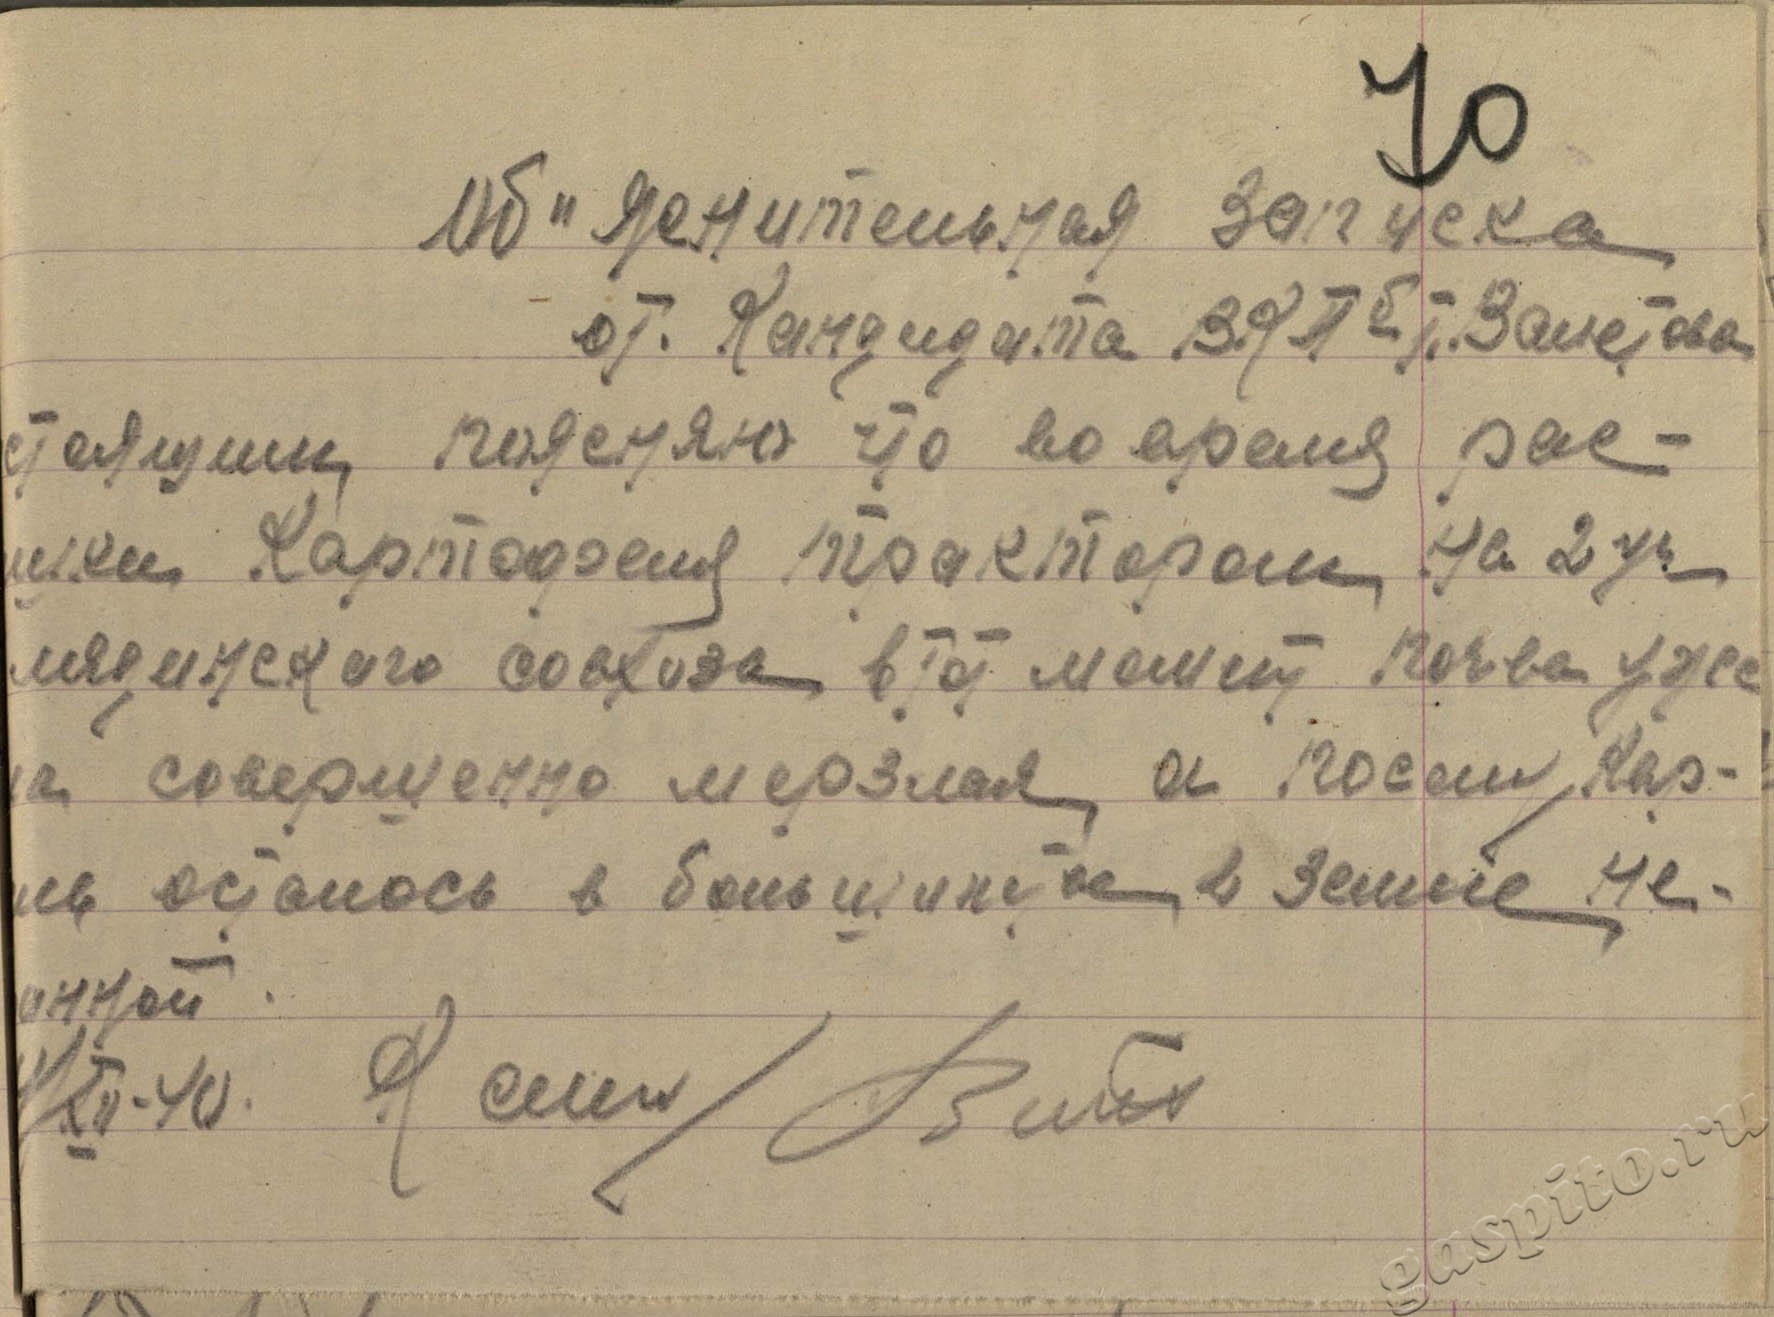 70
Об"яснительная записка
от. Кандидата ВКПб т. Заметова
стоящим поясняю что во время рас-
шки Картофеля трактором на 2 уч
мядинского совхоза в тот момент почва уже
ла совершенно мерзлая, а посему Кар-
ль осталось в большинстве в земле не-
анной.
XII-40. К сему
gaspito.ru